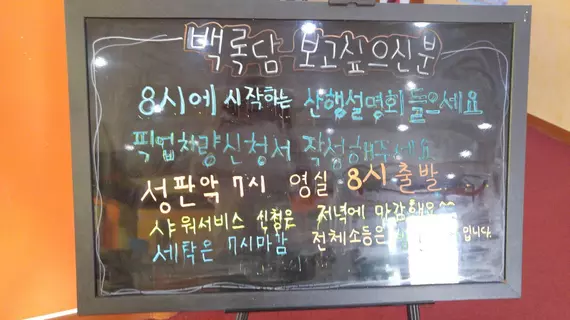 백록담 보고싶으신분
8시에 시작하는 산행설명회 들으세요
픽업차량신청서 작성해주세요
성판악 7시 영실 8시 출발
샤워서비스 신청은 저녁에 마감해요^^
세탁은 7시마감 전체소등은 입니다.